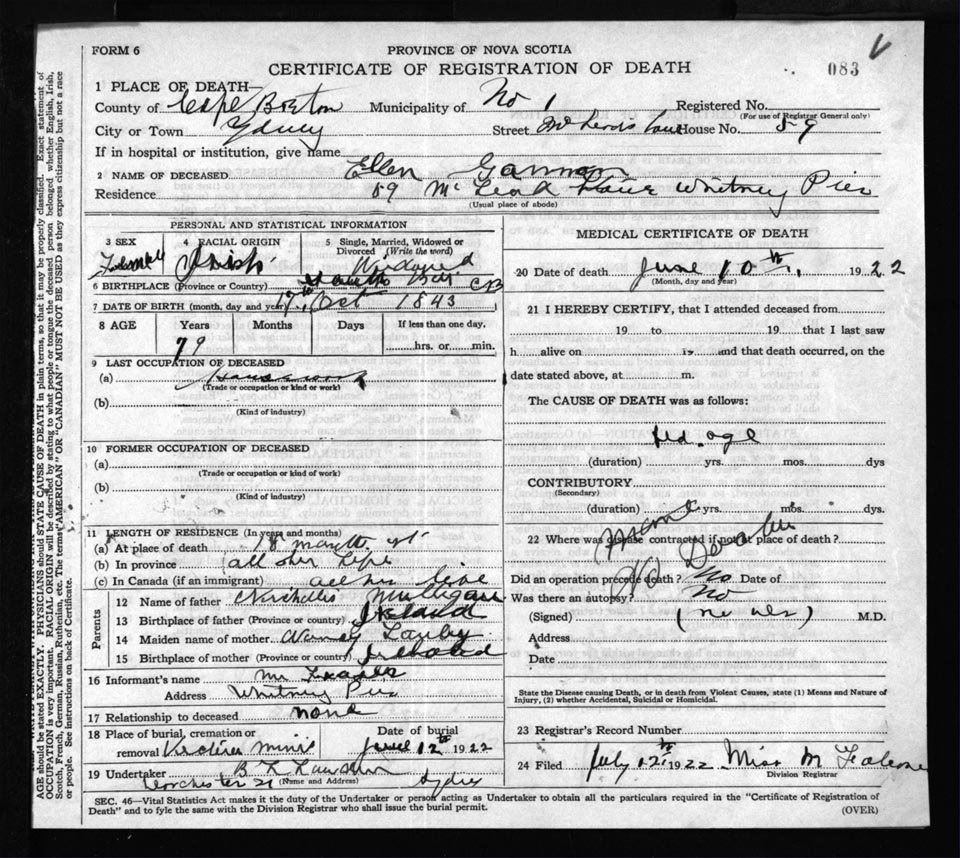 FORM 6
PROVINCE OF NOVA SCOTIA
CERTIFICATE OF REGISTRATION OF DEATH
083
1 PLACE OF DEATH
County of Cape Breton Municipality of No 1 Registered No.
(For use of Registrar General only)
City or Town Sydney Street House No. 89
If in hospital or institution, give name
2 NAME OF DECEASED Ellen Gannon
Residence 89 McLeod Whitney Pier
(Usual place of abode)
PERSONAL AND STATISTICAL INFORMATION
3 SEX
4 RACIAL ORIGIN
Irish
5 Single, Married, Widowed or
Divorced (Write the word)
Widowed
6 BIRTHPLACE (Province or Country) Bay CB
7 DATE OF BIRTH (month, day and year) 17th Oct 1843
8 AGE Years Months Days If less than one day,
79 hrs. or min.
9 LAST OCCUPATION OF DECEASED
(a) Housework
(Trade or occupation or kind or work)
(b)
(Kind of industry)
10 FORMER OCCUPATION OF DECEASED
(a)
(Trade or occupation or kind or work)
(b)
(Kind of industry)
11 LENGTH OF RESIDENCE (In years and months)
(a) At place of death 18 months
(b) In province all her life
(c) In Canada (if an immigrant) all her
Parents
12 Name of father Mulligan
13 Birthplace of father (Province or country) Ireland
14 Maiden name of mother
15 Birthplace of mother (Province or country) Ireland
16 Informant's name Mr
Address Whitney Pier
17 Relationship to deceased none
18 Place of burial, cremation or
removal Date of burial
June 12th 1922
19 Undertaker
(Name and Address)
Dorchester St Sydney
MEDICAL CERTIFICATE OF DEATH
20 Date of death June 10th 1922
(Month, day and year)
21 I HEREBY CERTIFY, that I attended deceased from
19 to 19 that I last saw
h alive on 19 and that death occurred, on the
date stated above, at m.
The CAUSE OF DEATH was as follows:
old age
(duration) yrs. mos. dys
CONTRIBUTORY
(Secondary)
(duration) yrs. mos. dys
22 Where was disease contracted if not at place of death?
No Doctor
Did an operation precede death? No Date of
Was there an autopsy? No
(Signed) M.D.
Address
Date
State the Disease causing Death, or in death from Violent Causes, state (1) Means and Nature of
Injury, (2) whether Accidental, Suicidal or Homicidal.
23 Registrar's Record Number
24 Filed July 12th 1922 Miss M
Division Registrar
SEC. 46—Vital Statistics Act makes it the duty of the Undertaker or person acting as Undertaker to obtain all the particulars required in the "Certificate of Registration of
Death" and to fyle the same with the Division Registrar who shall issue the burial permit.
(OVER)
AGE should be stated EXACTLY. PHYSICIANS should STATE CAUSE OF DEATH in plain terms, so that it may be properly classified. Exact statement of
OCCUPATION is very important. RACIAL ORIGIN will be described by stating to what people or tongue the deceased person belonged whether English, Irish,
Scotch, French, German, Russian, Ruthenian, etc. The terms "AMERICAN" OR "CANADIAN" MUST NOT BE USED as they express citizenship but not a race
or people. See instructions on back of Certificate.